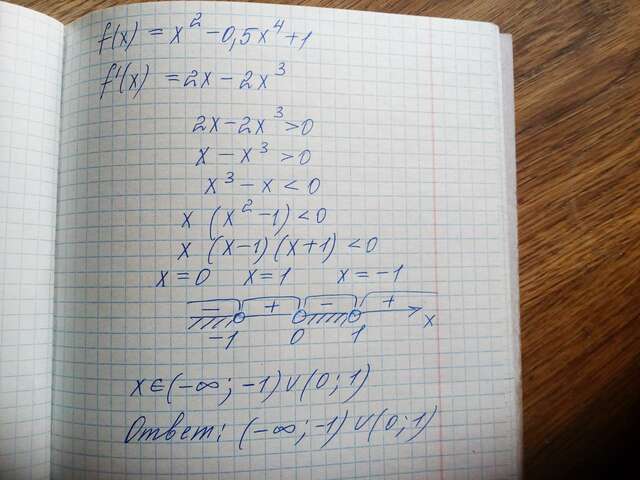 f(x) = x² - 0,5x⁴ + 1
f'(x) = 2x - 2x³
2x - 2x³ > 0
x - x³ > 0
x³ - x < 0
x (x² - 1) < 0
x (x-1) (x+1) < 0
x = 0 x = 1 x = -1
- + - +
-1 0 1 x
x ∈ (-∞; -1) ∪ (0; 1)
Ответ: (-∞; -1) ∪ (0; 1)